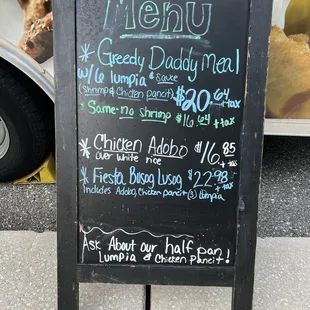 Menu
* Greedy Daddy Meal
w/6 lumpia & sauce
(Shrimp & Chicken pancit) $20.64 + tax
Same - no shrimp $16.64 + tax
* Chicken Adobo $16.85 + tax
over white rice
* Fiesta Busog Lusog $22.98 + tax
Includes Adobo, Chicken pancit (3) Lumpia
Ask About our half pan
Lumpia & Chicken Pancit!